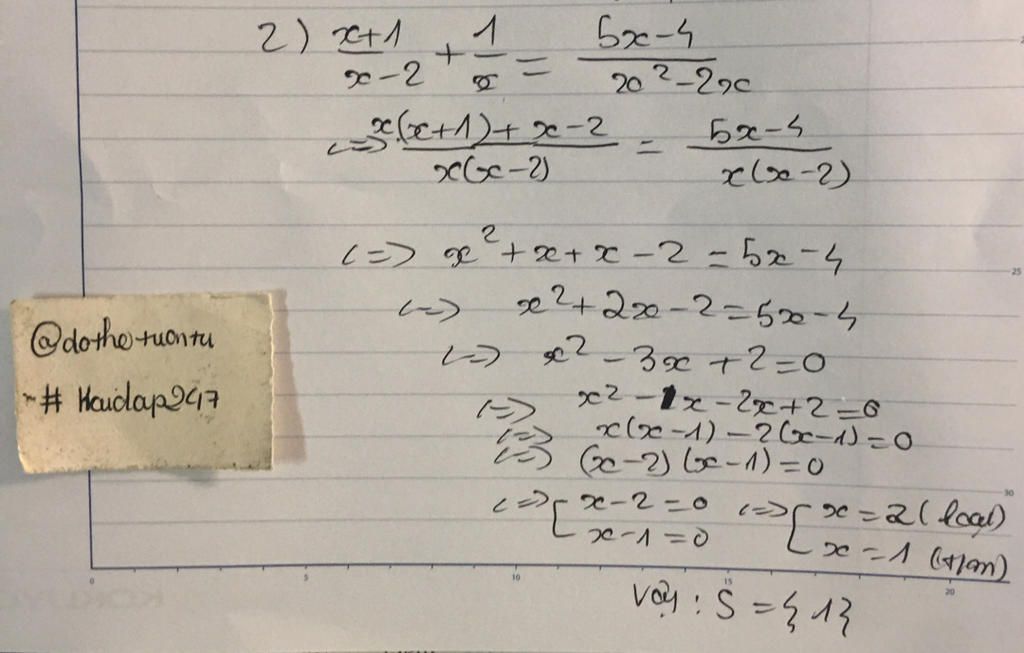 2) \frac{x+1}{x-2} + \frac{1}{x} = \frac{5x-4}{x^2-2x}
<=> \frac{x(x+1)+x-2}{x(x-2)} = \frac{5x-4}{x(x-2)}
<=> x^2+x+x-2=5x-4
<=> x^2+2x-2=5x-4
<=> x^2-3x+2=0
<=> x^2-1x-2x+2=0
<=> x(x-1)-2(x-1)=0
<=> (x-2)(x-1)=0
<=> [ x-2=0 <=> [ x=2 (loại)
x-1=0 x=1 (t/m)
Vậy: S={1}
@dothetuantu
# Hoidap247
25
30
0 5 10 15 20